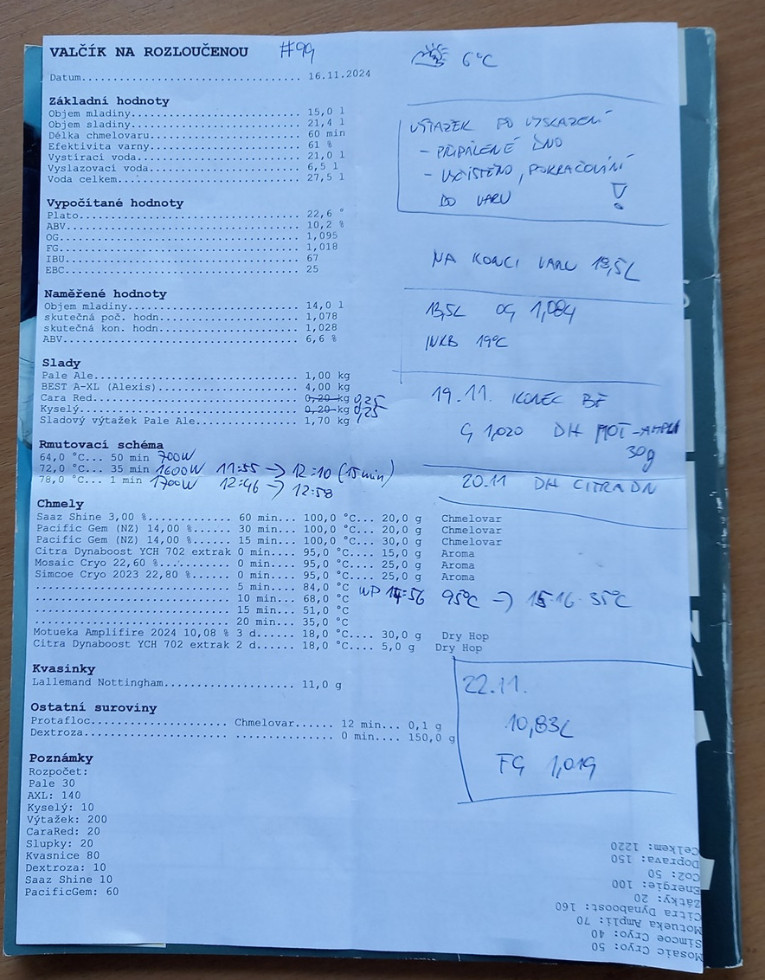 VALČÍK NA ROZLOUČENOU #99
Datum................................ 16.11.2024
Základní hodnoty
Objem mladiny........................ 15,0 l
Objem sladiny........................ 21,4 l
Délka chmelovaru..................... 60 min
Efektivita varny..................... 61 %
Vystírací voda....................... 21,0 l
Vyslazovací voda..................... 6,5 l
Voda celkem.......................... 27,5 l
Vypočítané hodnoty
Plato................................ 22,6 °
ABV.................................. 10,2 %
OG................................... 1,095
FG................................... 1,018
IBU.................................. 67
EBC.................................. 25
Naměřené hodnoty
Objem mladiny........................ 14,0 l
skutečná poč. hodn................... 1,078
skutečná kon. hodn................... 1,028
ABV.................................. 6,6 %
Slady
Pale Ale............................. 1,00 kg
BEST A-XL (Alexis)................... 4,00 kg
Cara Red............................. 0,20 kg 0,25
Kyselý............................... 0,20 kg 0,25
Sladový výtažek Pale Ale............. 1,70 kg
Rmutovací schéma
64,0 °C... 50 min 700W
72,0 °C... 35 min 1600W 11:55 → 12:10 (15 min)
78,0 °C... 1 min 1700W 12:46 → 12:58
Chmely
Saaz Shine 3,00 %............ 60 min... 100,0 °C... 20,0 g Chmelovar
Pacific Gem (NZ) 14,00 %..... 30 min... 100,0 °C... 20,0 g Chmelovar
Pacific Gem (NZ) 14,00 %..... 15 min... 100,0 °C... 30,0 g Chmelovar
Citra Dynaboost YCH 702 extrak 0 min.... 95,0 °C... 15,0 g Aroma
Mosaic Cryo 22,60 %.......... 0 min.... 95,0 °C... 25,0 g Aroma
Simcoe Cryo 2023 22,80 %..... 0 min.... 95,0 °C... 25,0 g Aroma
............................. 5 min.... 84,0 °C
............................. 10 min... 68,0 °C WP 14:56 95°C → 15:16 35°C
............................. 15 min... 51,0 °C
............................. 20 min... 35,0 °C
Motueka Amplifire 2024 10,08 % 3 d...... 18,0 °C.... 30,0 g Dry Hop
Citra Dynaboost YCH 702 extrak 2 d...... 18,0 °C.... 5,0 g Dry Hop
Kvasinky
Lallemand Nottingham................. 11,0 g
Ostatní suroviny
Protafloc.................... Chmelovar...... 12 min... 0,1 g
Dextroza..................... ............... 0 min.... 150,0 g
Poznámky
Rozpočet:
Pale 30
AXL: 140
Kyselý: 10
Výtažek: 200
CaraRed: 20
Slupky: 20
Kvasnice 80
Dextroza: 10
Saaz Shine 10
PacificGem: 60
6°C
VÝTAŽEK PO VYSLAZENÍ
- PŘIPÁLENÉ DNO
- VYČIŠTĚNO, POKRAČOVÁNÍ
DO VARU !
NA KONCI VARU 18,5L
13,5L OG 1,084
INKB 19°C
19.11. KONEC BF
G 1,020 DH MOT-AMPLI
30g
20.11 DH CITRA DN
22.11.
10,83L
FG 1,019
Mosaic Cryo: 50
Simcoe Cryo: 40
Motueka Ampli: 70
Citra Dynaboost: 160
Zátky: 20
Energie: 100
Co2: 50
Doprava: 150
Celkem: 1220